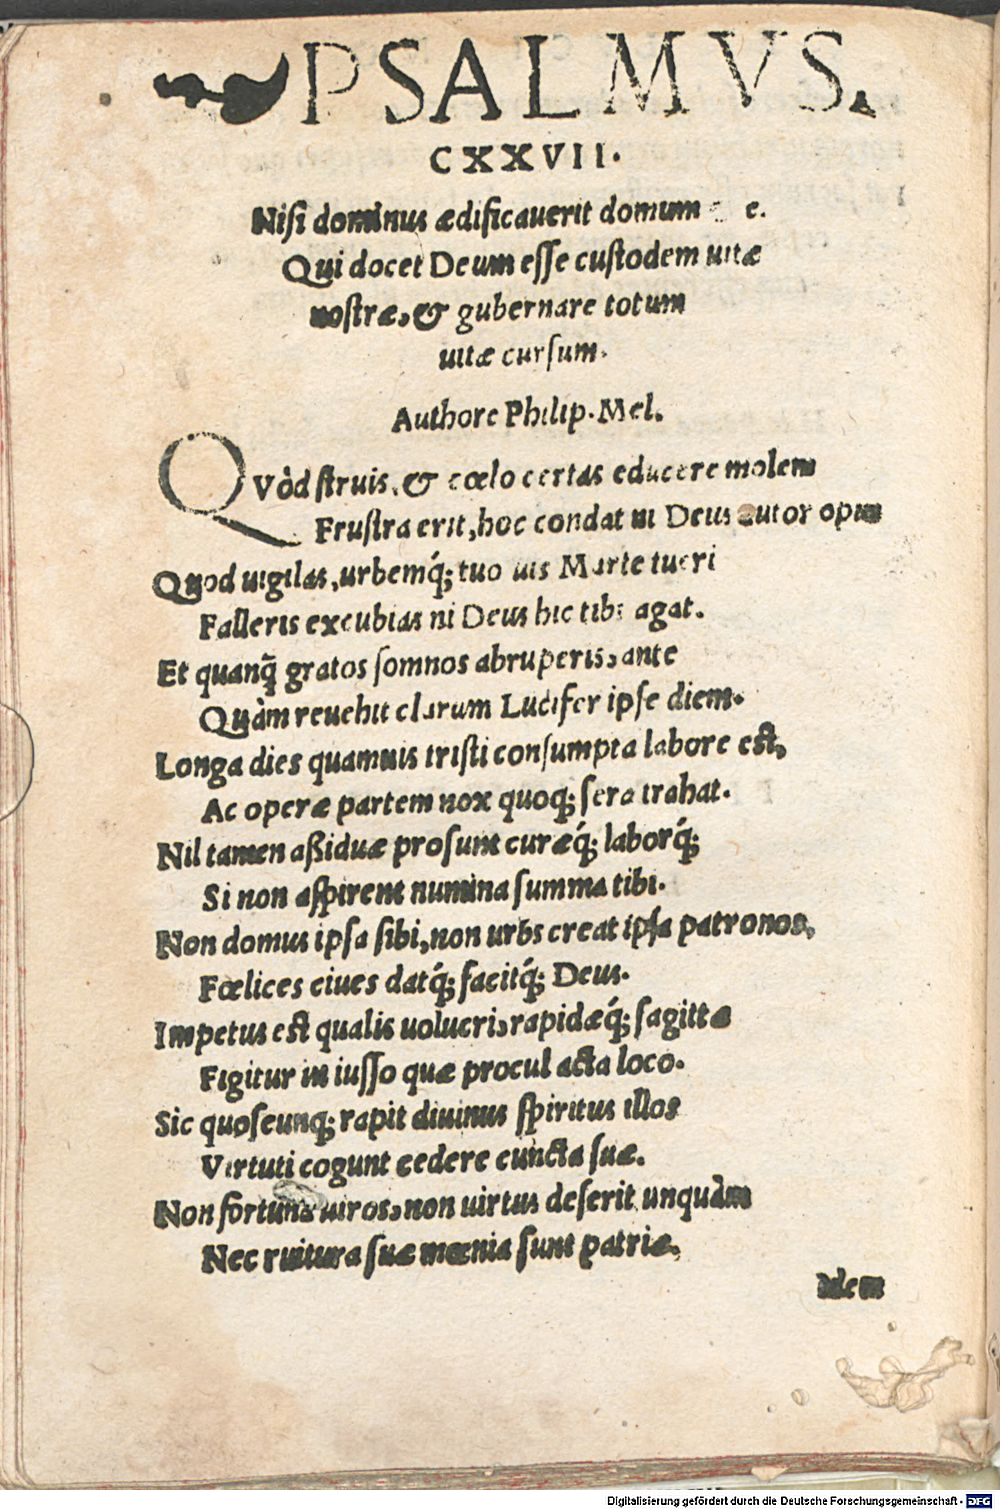 PSALMVS.
CXXVII.
Nisi dominus ædificauerit domum e.
Qui docet Deum esse custodem uitæ
nostræ, & gubernare totum
uitæ cursum.
Authore Philip. Mel.
QVòd struis, & cœlo certas educere molem
Frustra erit, hoc condat ni Deus autor opus
Quod uigilas, urbemq́; tuo uis Marte tueri
Falleris excubias ni Deus hic tibi agat.
Et quanq̃ gratos somnos abruperis, ante
Quàm reuehit clarum Lucifer ipse diem.
Longa dies quamuis tristi consumpta labore est,
Ac operæ partem nox quoq; sera trahat.
Nil tamen aßiduæ prosunt curæq́; laborq́;
Si non aspirent numina summa tibi.
Non domus ipsa sibi, non urbs creat ipsa patronos,
Fœlices ciues datq́; facitq́; Deus.
Impetus est qualis uolucris rapidæq́; sagittæ
Figitur in iusso quæ procul acta loco.
Sic quoscunq; rapit diuinus spiritus illos
Virtuti cogunt cedere cuncta suæ.
Non fortuna uiros, non uirtus deserit unquàm
Nec ruitura suæ mœnia sunt patriæ.
Idem
Digitalisierung gefördert durch die Deutsche Forschungsgemeinschaft - DFG